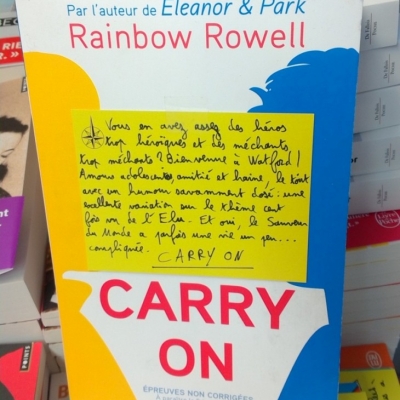 Par l'auteur de Eleanor & Park
Rainbow Rowell
Vous en avez assez des héros
trop héroïques et des méchants
trop méchants ? Bienvenue à Watford !
Amours adolescents, amitié et haine, le tout
avec un humour savamment dosé : une
excellente variation sur le thème cent
fois vu de l'Élu. Et oui, le Sauveur
du Monde a parfois une vie un peu...
compliquée. CARRY ON
CARRY
ON
ÉPREUVES NON CORRIGÉES
POINTS